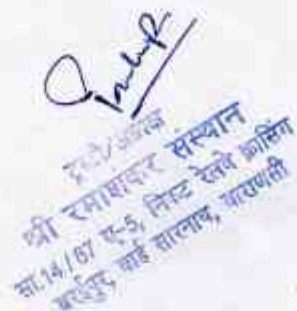 ट्रस्टी/अध्यक्ष
श्री रमाशंकर संस्थान
सा.14/67 ए-5, निकट रेलवे क्रासिंग
बरईपुर, वार्ड सारनाथ, वाराणसी